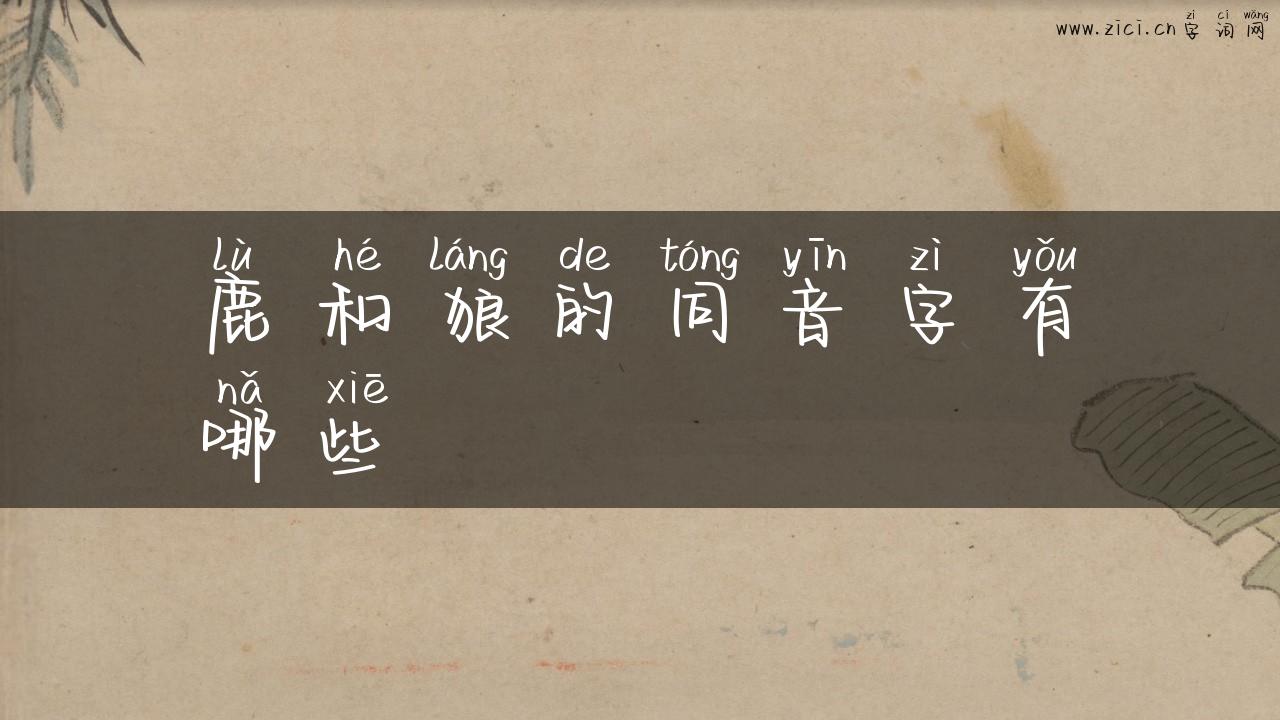 zì cí wǎng
www.zici.cn 字词网
lù hé láng de tóng yīn zì yǒu
鹿和狼的同音字有
nǎ xiē
哪些